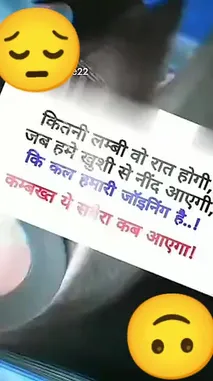 622
कितनी लम्बी वो रात होगी,
जब हमे खुशी से नींद आएगी
कि कल हमारी जॉइनिंग है..!
कम्बख्त ये सवेरा कब आएगा!